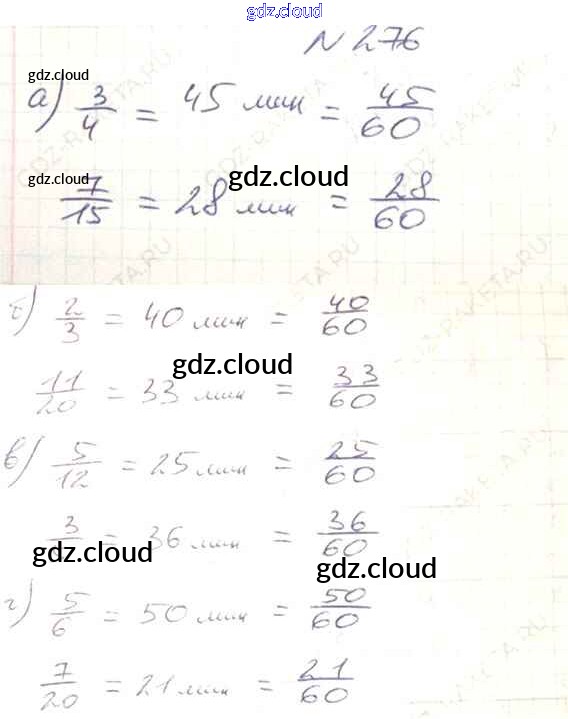 gdz.cloud
N 276
gdz.cloud
а) 3/4 = 45 мин = 45/60
gdz.cloud gdz.cloud
7/15 = 28 мин = 28/60
б) 2/3 = 40 мин = 40/60
gdz.cloud
11/20 = 33 мин = 33/60
в) 5/12 = 25 мин = 25/60
3 = 36 мин = 36/60
gdz.cloud gdz.cloud
г) 5/6 = 50 мин = 50/60
7/20 = 21 мин = 21/60